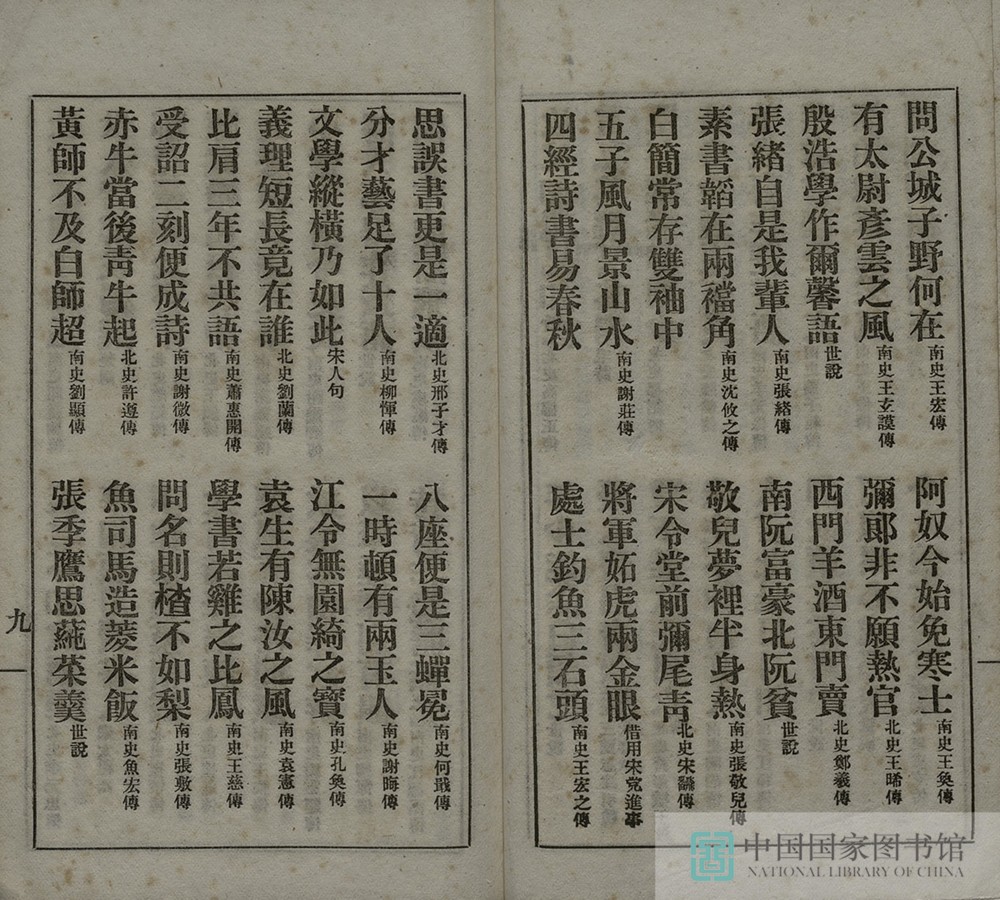 問公城子野何在南史王宏傳
阿奴今始免寒士南史王奐傳
有太尉彥雲之風南史王玄謨傳
彌郎非不願熱官北史王晞傳
殷浩學作爾馨語世說
西門羊酒東門賣北史鄭羲傳
張緒自是我輩人南史張緒傳
南阮富豪北阮貧世說
素書韜在兩襠角南史沈攸之傳
敬兒夢裡半身熱南史張敬兒傳
白簡常存雙袖中
宋令堂前彌尾青北史宋飜傳
五子風月景山水南史謝莊傳
將軍妬虎兩金眼借用宋党進事
四經詩書易春秋
處士釣魚三石頭南史王宏之傳
思誤書更是一適北史邢子才傳
八座便是三蟬冕南史何戢傳
分才藝足了十人南史柳惲傳
一時頓有兩玉人南史謝晦傳
文學縱橫乃如此宋人句
江令無園綺之寶南史孔奐傳
義理短長竟在誰北史劉蘭傳
袁生有陳汝之風南史袁憲傳
比肩三年不共語南史蕭惠開傳
學書若雞之比鳳南史王慈傳
受詔二刻便成詩南史謝微傳
問名則楂不如梨南史張敷傳
赤牛當後靑牛起北史許遵傳
魚司馬造菱米飯南史魚宏傳
黃師不及白師超南史劉顯傳
張季鷹思蓴菜羹世說
九
中国国家图书馆
NATIONAL LIBRARY OF CHINA